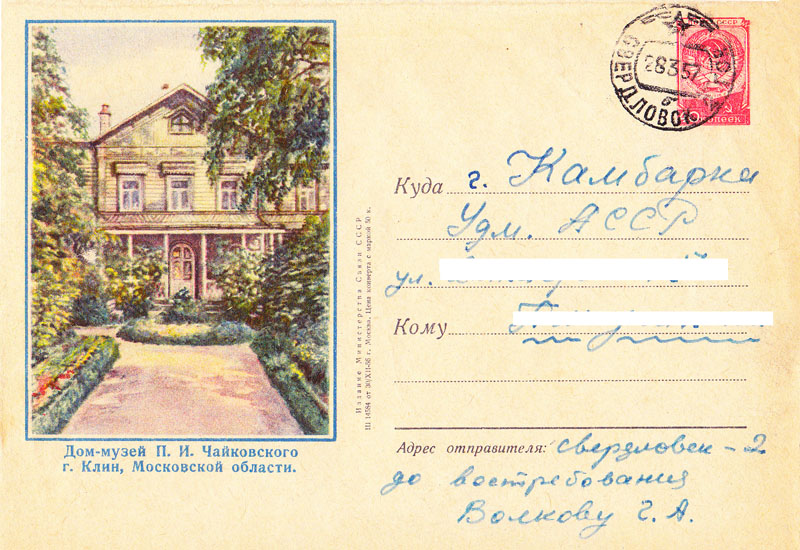 Дом-музей П. И. Чайковского
г. Клин, Московской области.
Издание Министерства Связи СССР
Ш 14584 от 30/XII-56 г. Москва. Цена конверта с маркой 50 к.
СВЕРДЛОВСК
28 3 57
Куда г. Камбарка
Удм. АССР
ул.
Кому
Адрес отправителя: Свердловск-2
до востребования
Волкову Г. А.